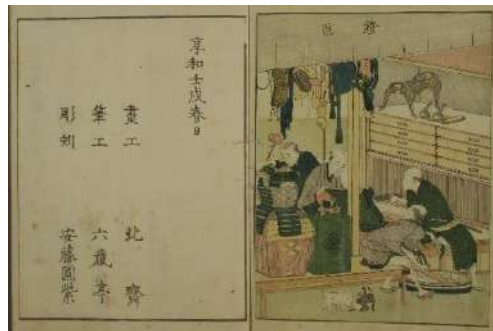 鎧匠
享和壬戌春日
畫工 北齋
筆工 六藏亭
彫刻 安藤圓紫